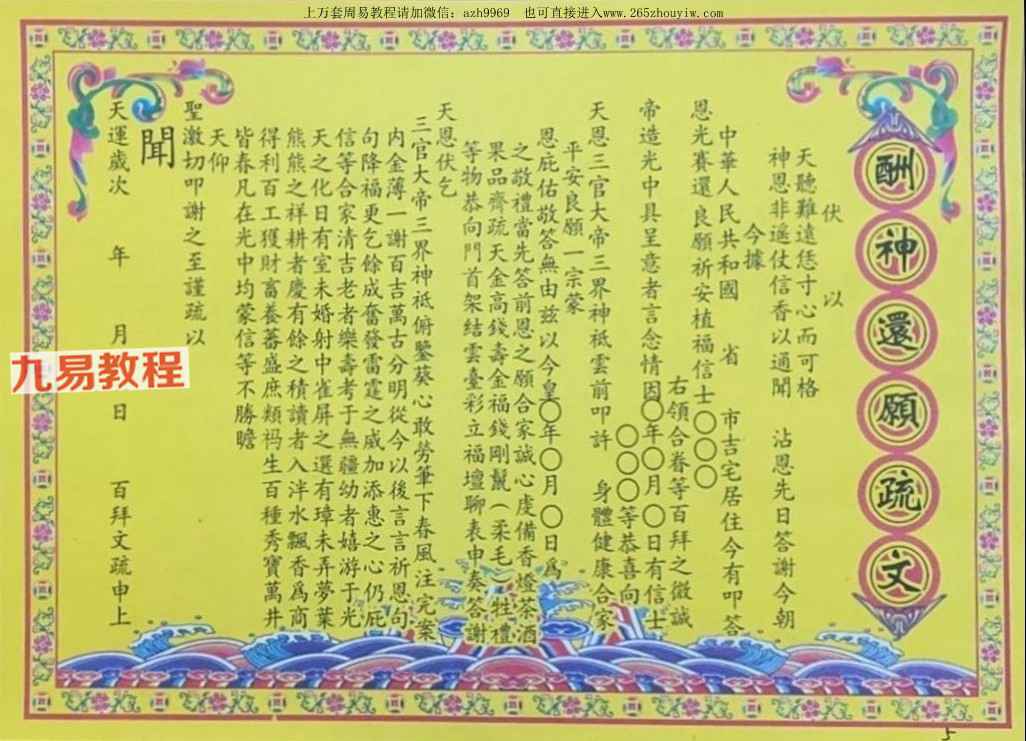 上万套周易教程请加微信：azh9969　也可直接进入www.265zhouyiw.com
酬神還願疏文
伏　以
天聽難遠恁寸心而可格　沾恩先日答謝今朝
神恩非遥仗信香以通聞
今據
中華人民共和國　省　市吉宅居住今有叩答
恩光賽還良願祈安植福信士〇〇〇
右領合眷等百拜之微誠
帝造光中具呈意者言念情因〇年〇月〇日有信士
〇〇〇等恭喜向
天恩三官大帝三界神祗雲前叩許　身體健康合家
平安良願一宗蒙
恩庇佑敬答無由兹以今皇〇年〇月〇日爲
之敬禮當先答前恩之願合家誠心虔備香燈茶酒
果品齊疏天金高錢壽金福錢剛鬣（柔毛）牲禮
等物恭向門首架結雲臺彩立福壇聊表申奏答謝
天恩伏乞
三官大帝三界神祗俯鑒葵心敢勞筆下春風注完案
内金薄一謝百吉萬古分明從今以後言言祈恩句
句降福更乞餘成奮發雷霆之威加添惠之心仍庇
信等合家清吉老者樂壽考于無疆幼者嬉游于光
天之化日有室未婚射中雀屏之選有璋未弄夢葉
熊熊之祥耕者慶有餘之積讀者入泮水飄香爲商
得利百工獲財畜養蕃盛庶類祃生百種秀寶萬井
皆春凡在光中均蒙信等不勝瞻
天仰
聖激切叩謝之至謹疏以
聞
天運歲次　年　月　日　百拜文疏申上
九易教程
5